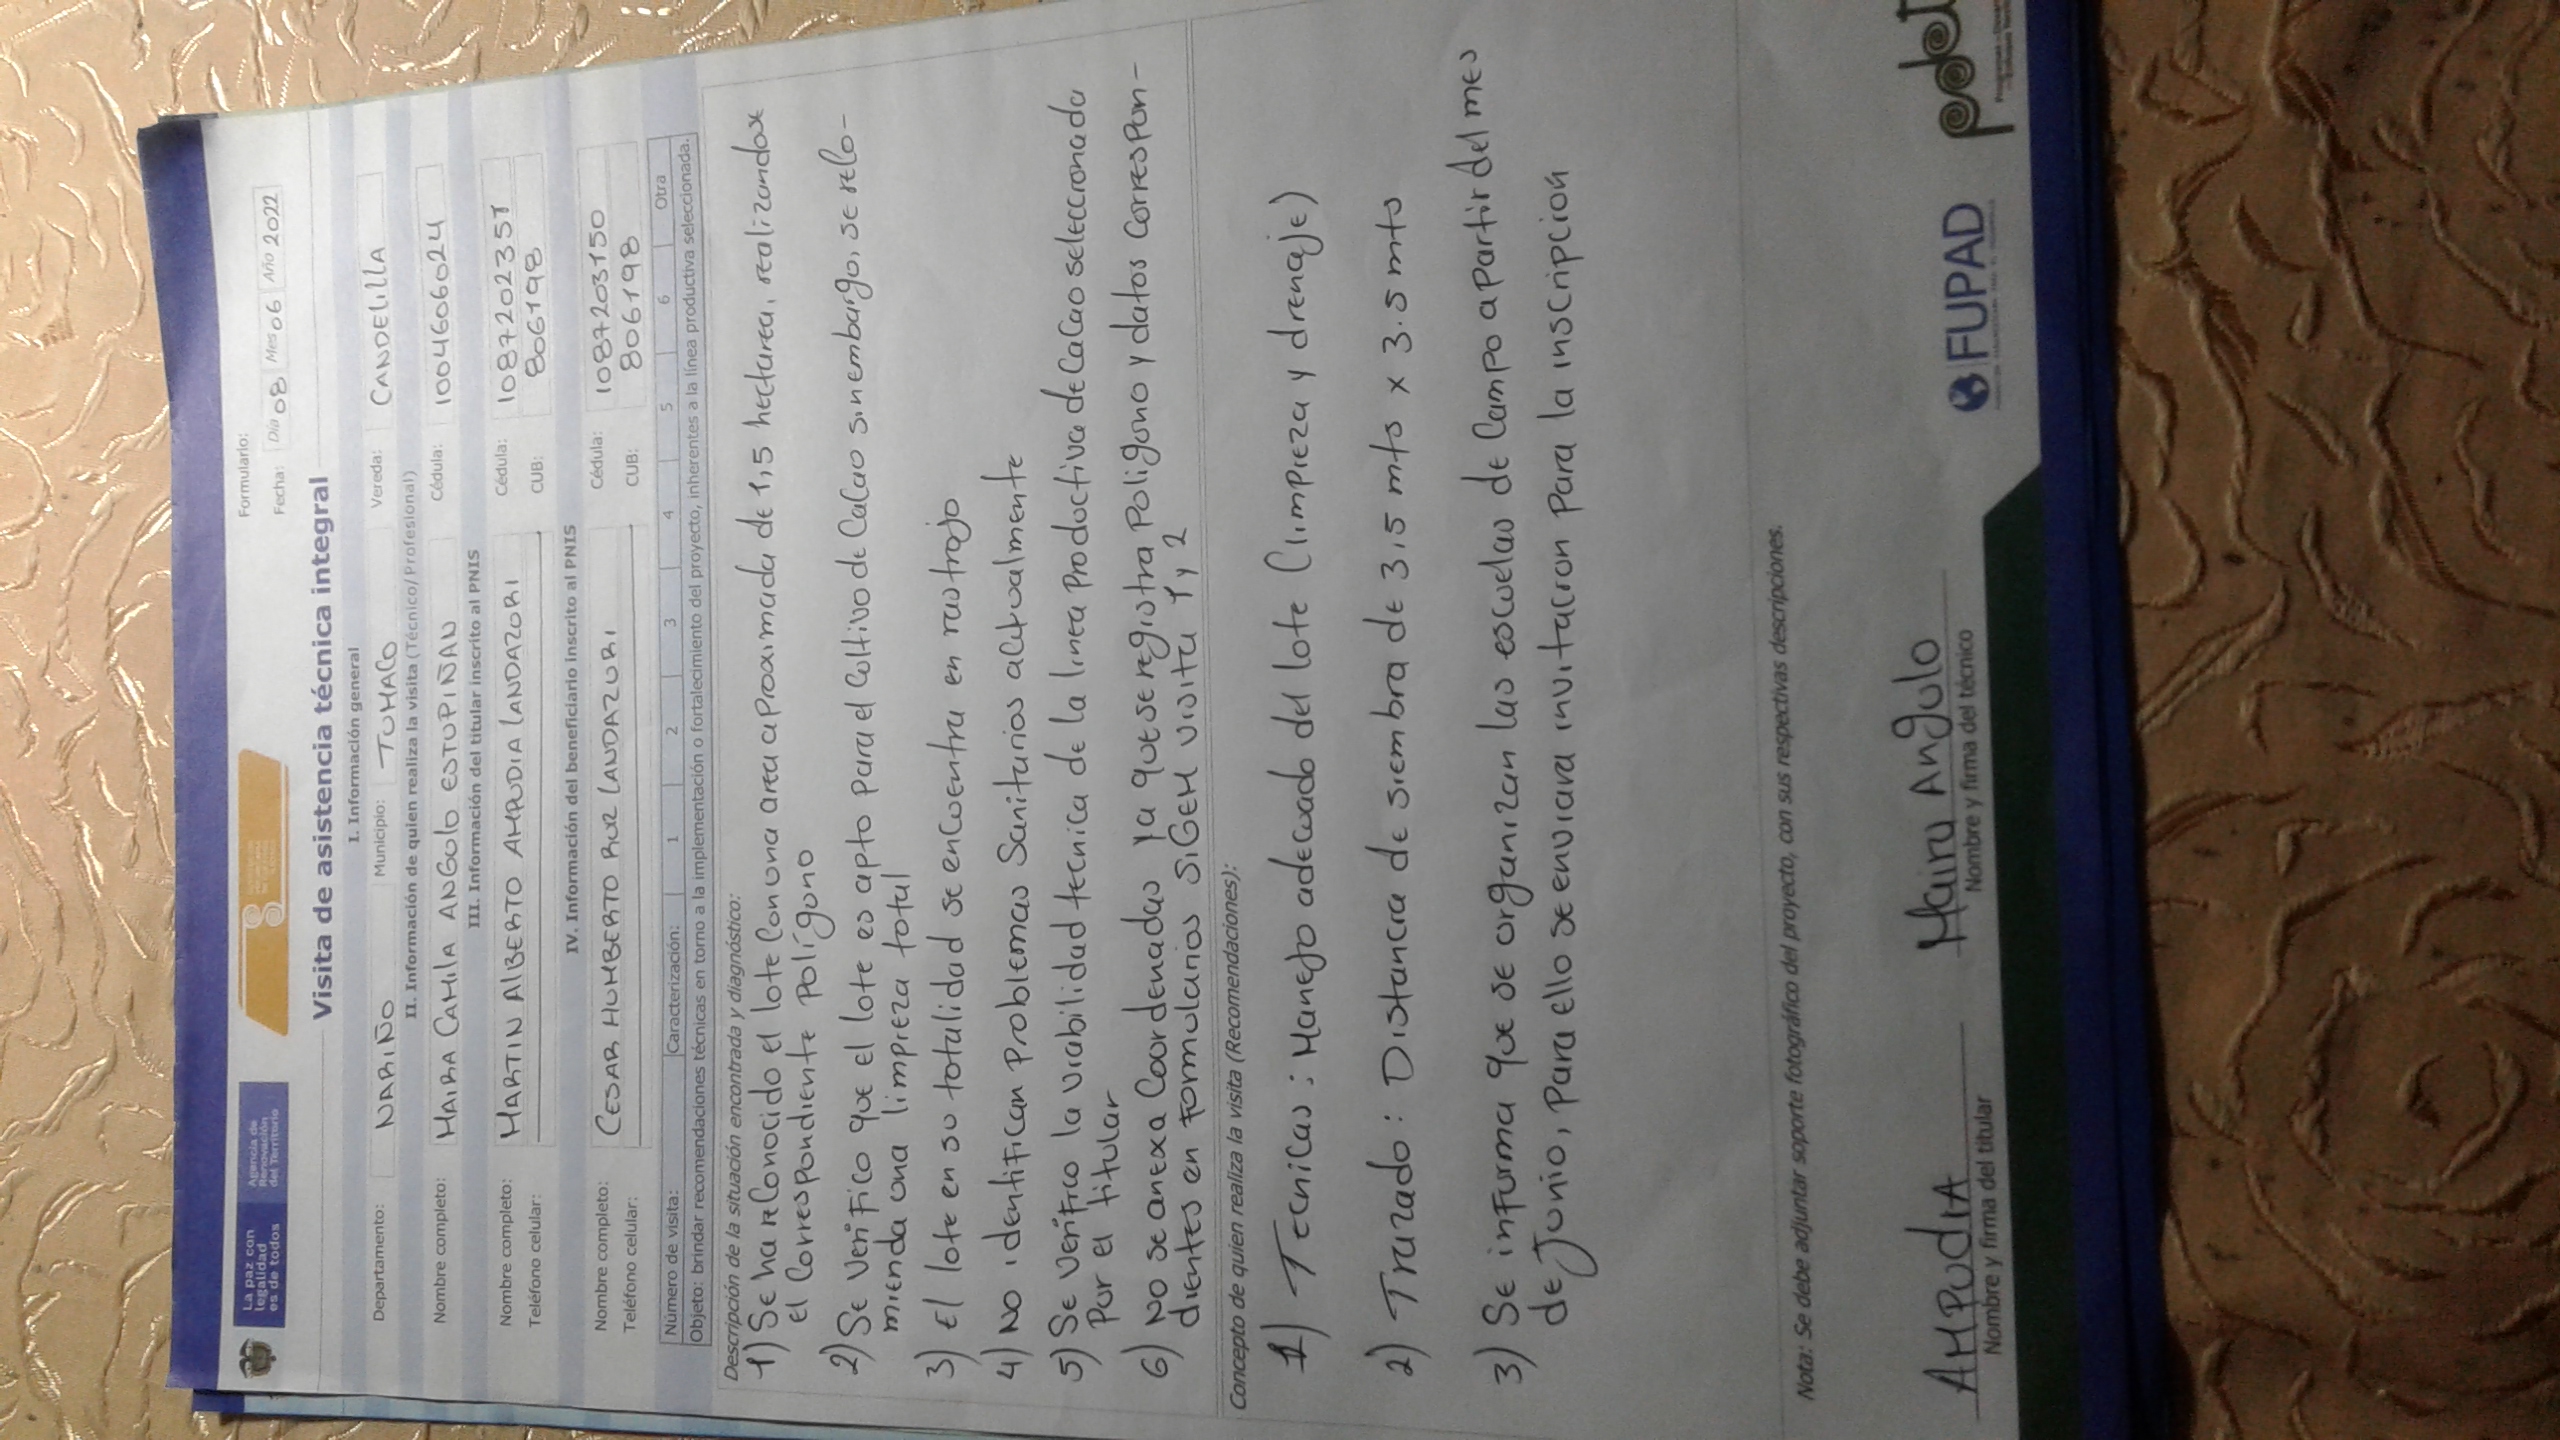 La paz con
legalidad
es de todos
Agencia de
Renovación
del Territorio
Formulario:
Fecha: Día 08 Mes 06 Año 2022
Visita de asistencia técnica integral
I. Información general
Departamento: NARIÑO Municipio: TUMACO Vereda: CANDELILLA
II. Información de quien realiza la visita (Técnico/Profesional)
Nombre completo: MAIRA CAMILA ANGULO ESTUPIÑAN Cédula: 1004606024
III. Información del titular inscrito al PNIS
Nombre completo: MARTIN ALBERTO AMPUDIA LANDAZURI Cédula: 1087202351
Teléfono celular: CUB: 806198
IV. Información del beneficiario inscrito al PNIS
Nombre completo: CESAR HUMBERTO RUIZ LANDAZURI Cédula: 1087203150
Teléfono celular: CUB: 806198
Número de visita: Caracterización: 1 2 3 4 5 6 Otra
Objeto: brindar recomendaciones técnicas en torno a la implementación o fortalecimiento del proyecto, inherentes a la línea productiva seleccionada.
Descripción de la situación encontrada y diagnóstico:
1) Se ha reconocido el lote con una area aproximada de 1,5 hectarea, realizandose
el correspondiente Polígono
2) Se Verifico que el lote es apto para el cultivo de Cacao sin embargo, se reco-
mienda una limpieza total
3) El lote en su totalidad se encuentra en rastrojo
4) No identifican Problemas Sanitarios actualmente
5) Se Verifico la viabilidad tecnica de la linea Productiva de CaCao seleccionada
Por el titular
6) No se anexa Coordenadas ya que se registra Poligono y datos correspon-
dientes en formularios SIGEM visita 1 y 2
Concepto de quien realiza la visita (Recomendaciones):
1) Tecnicas: Manejo adecuado del lote (limpieza y drenaje)
2) Trazado: Distancia de siembra de 3,5 mts x 3.5 mts
3) Se informa que se organizan las escuelas de Campo a partir del mes
de Junio, Para ello se enviara invitacion Para la inscripción
Nota: Se debe adjuntar soporte fotográfico del proyecto, con sus respectivas descripciones.
AMPUDIA
Nombre y firma del titular
Maira Angulo
Nombre y firma del técnico
FUPAD
pdet